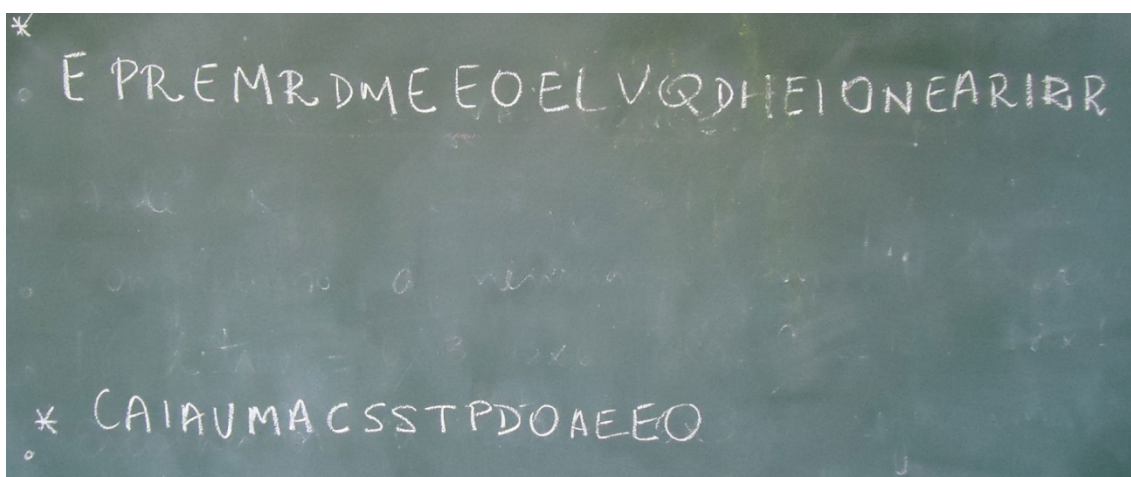 * EPREMRDMEEOELVQDHEIONEARIBR
* CAIAUMACSSTPDOAEEO